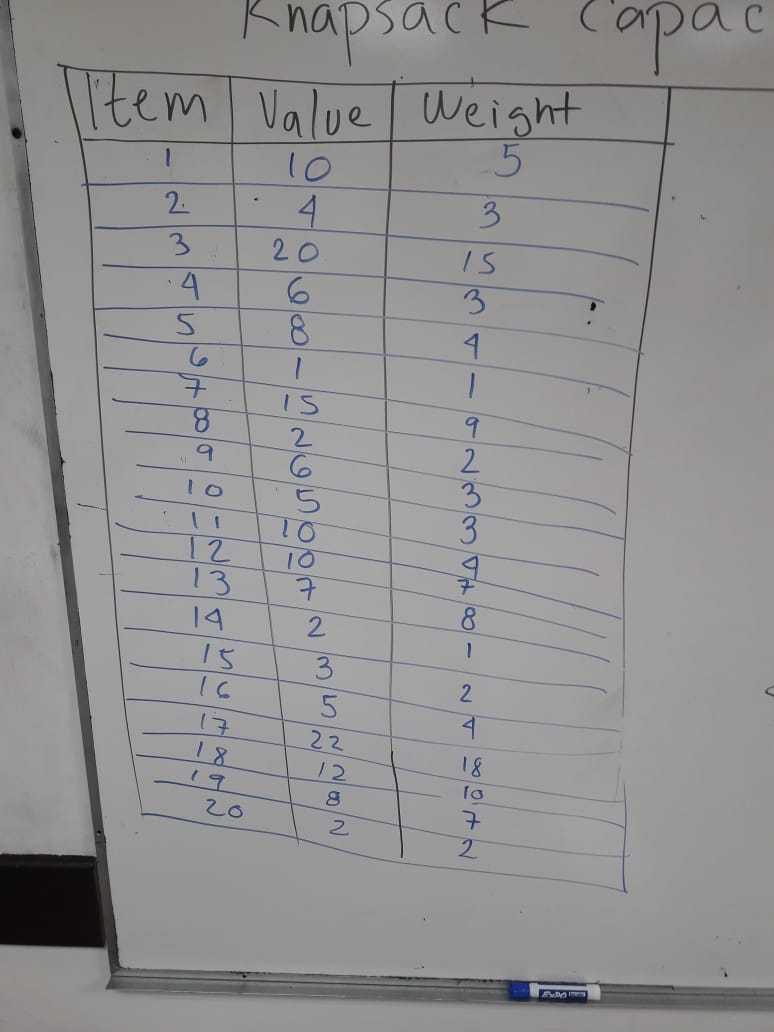 Knapsack Capac
Item Value Weight
1 10 5
2 4 3
3 20 15
4 6 3
5 8 4
6 1 1
7 15 9
8 2 2
9 6 3
10 5 3
11 10 4
12 10 7
13 7 8
14 2 1
15 3 2
16 5 4
17 22 18
18 12 10
19 8 7
20 2 2
EXPO